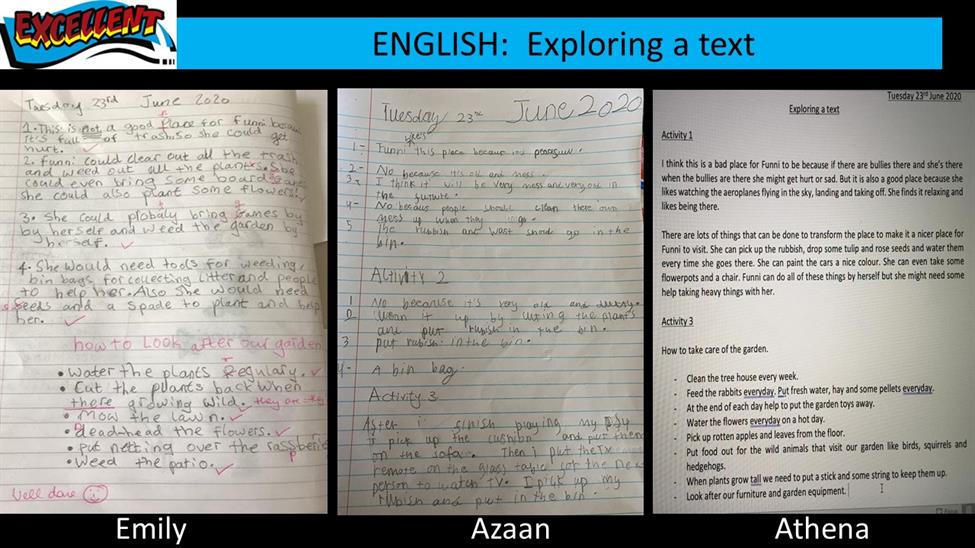 EXCELLENT
ENGLISH: Exploring a text
Tuesday 23rd June 2020
1. This is not a good place for funni becaus
it's full of trash. so she could get
hurt.
2. Funni could clear out all the trash
and weed out all the plants. She
could even bring some board games
she could also plant some flowers.
3. She could probaly bring games by
by herself and weed the garden by
herself.
4. She would need tools for weeding,
bin bags for collecting litter and people
to help her. Also she would need
seeds and a spade to plant and help
her.
how to look after our garden
• water the plants Regulary.
• Cut the plants back when
there growing wild. they are they
• Mow the lawn.
• dead-head the flowers.
• put netting over the rassberies
• Weed the patio.
Well done
Tuesday 23rd June 2020
1- Funni this place becaus
2- No because it's old and mess.
3- I think it will be very mess and very old in
the
4- No becaus people should clean there own
mess up when they go.
5 The rubbish and wast should go in the
bin.
Activity 2
1 No because it's very old and
2 Clean it up by cuting the plants
and put rubish in the bin.
3 put rubish in the bin.
4- A bin bag.
Activity 3
After i finish playing my
I pick up the cushion and put them
on the sofa. Then i put the Tv
remote on the glass table for the next
person to watch TV. I pick up my
rubish and put in the bin.
Tuesday 23rd June 2020
Exploring a text
Activity 1
I think this is a bad place for Funni to be because if there are bullies there and she's there
when the bullies are there she might get hurt or sad. But it is also a good place because she
likes watching the aeroplanes flying in the sky, landing and taking off. She finds it relaxing and
likes being there.
There are lots of things that can be done to transform the place to make it a nicer place for
Funni to visit. She can pick up the rubbish, drop some tulip and rose seeds and water them
every time she goes there. She can paint the cars a nice colour. She can even take some
flowerpots and a chair. Funni can do all of these things by herself but she might need some
help taking heavy things with her.
Activity 3
How to take care of the garden.
- Clean the tree house every week.
- Feed the rabbits everyday. Put fresh water, hay and some pellets everyday.
- At the end of each day help to put the garden toys away.
- Water the flowers everyday on a hot day.
- Pick up rotten apples and leaves from the floor.
- Put food out for the wild animals that visit our garden like birds, squirrels and
hedgehogs.
- When plants grow tall we need to put a stick and some string to keep them up.
- Look after our furniture and garden equipment.
Focus
Emily
Azaan
Athena